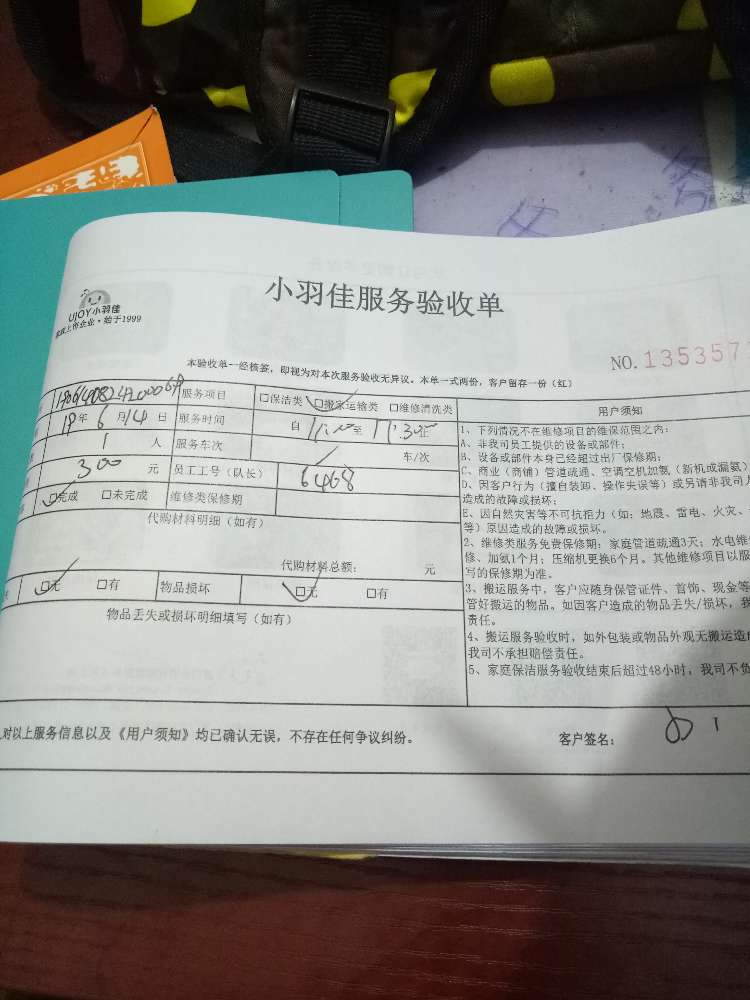 UJOY小羽佳
家政上市企业·始于1999
小羽佳服务验收单
本验收单一经核签，即视为对本次服务验收无异议。本单一式两份，客户留存一份（红）
NO.135357
服务项目 □保洁类 □搬家运输类 □维修清洗类
年6月14日 服务时间 自 至 11:30
1 人 服务车次 车/次
300 元 员工工号（队长） 6468
□完成 □未完成 维修类保修期
代购材料明细（如有）
代购材料总额： 元
□无 □有 物品损坏 □无 □有
物品丢失或损坏明细填写（如有）
用户须知
1、下列情况不在维修项目的维保范围之内：
A、非我司员工提供的设备或部件；
B、设备或部件本身已经超过出厂保修期；
C、商业（商铺）管道疏通、空调空机加氨（新机或漏氨）
D、因客户行为（擅自装卸、操作失误等）或另请非我司人
造成的故障或损坏；
E、因自然灾害等不可抗拒力（如：地震、雷电、火灾、
等）原因造成的故障或损坏。
2、维修类服务免费保修期：家庭管道疏通3天；水电维
修、加氨1个月；压缩机更换6个月。其他维修项目以服
写的保修期为准。
3、搬运服务中，客户应随身保管证件、首饰、现金等
管好搬运的物品。如因客户造成的物品丢失/损坏，我
责任。
4、搬运服务验收时，如外包装或物品外观无搬运造
我司不承担赔偿责任。
5、家庭保洁服务验收结束后超过48小时，我司不负
对以上服务信息以及《用户须知》均已确认无误，不存在任何争议纠纷。
客户签名：